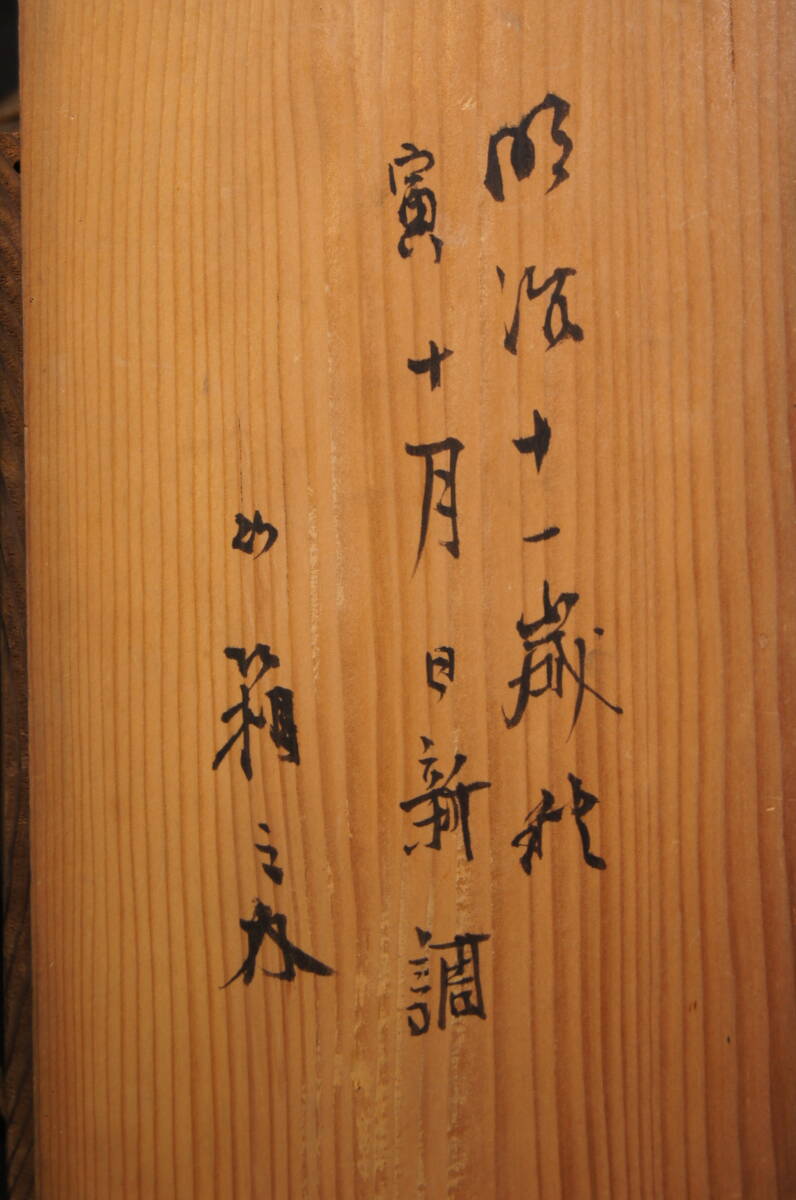 明治十一歳秋
寅十月日新調
箱之内